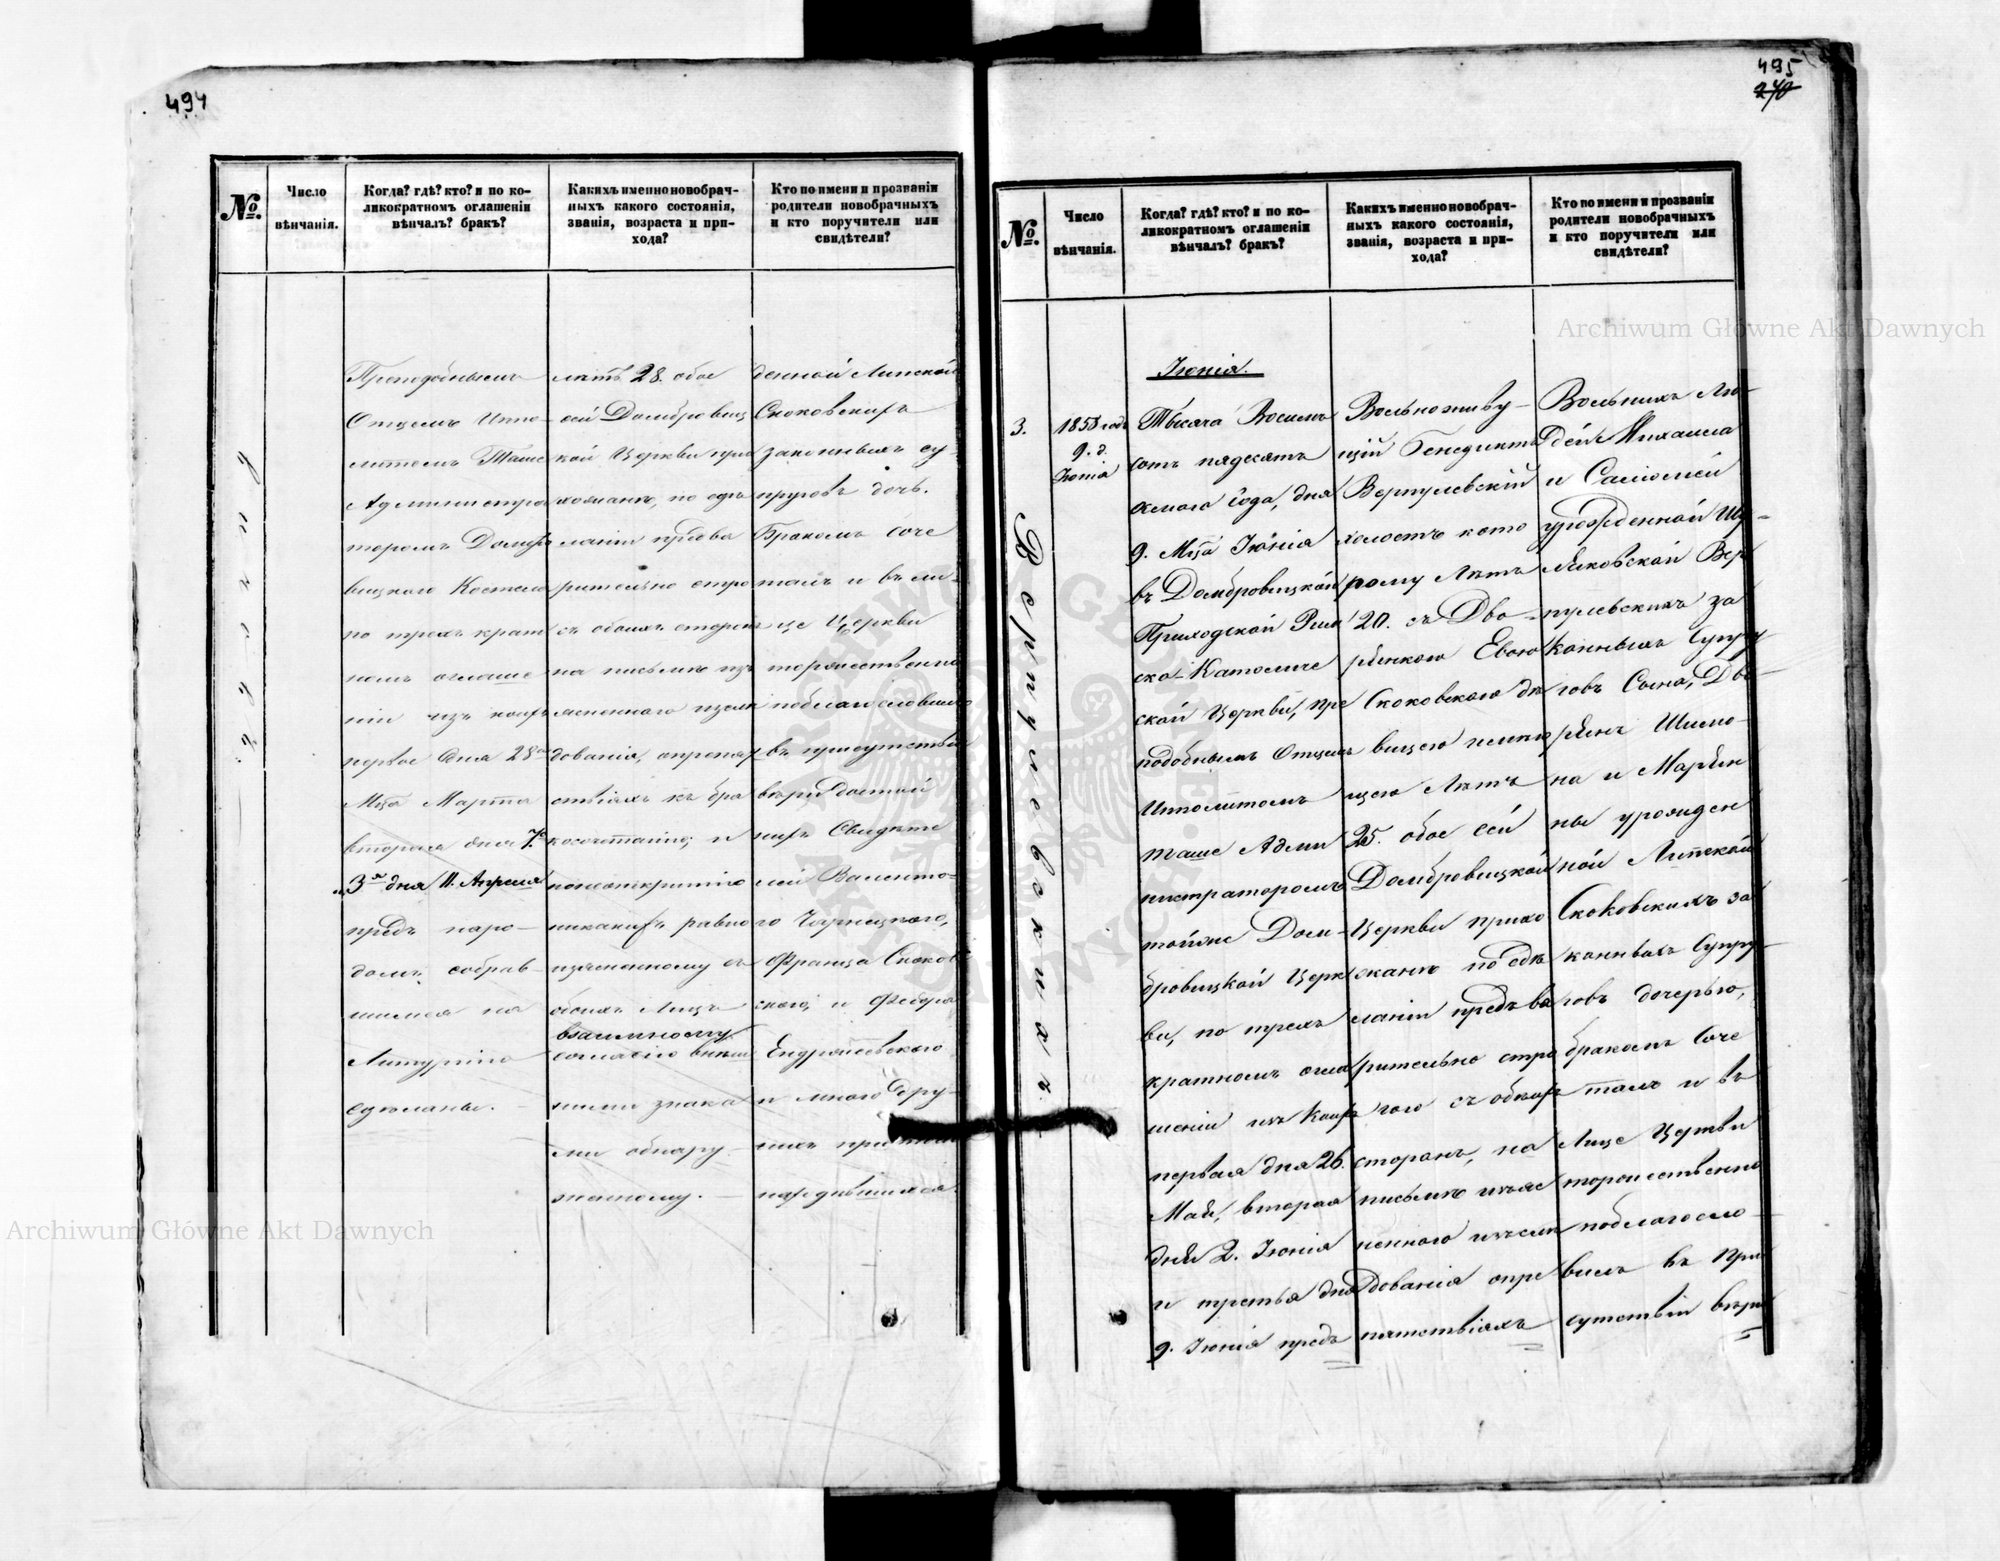 494
№.
Число
вѣнчанія.
Когда? гдѣ? кто? и по ко-
ликократномъ оглашеніи
вѣнчалъ? бракъ?
Какихъ именно новобрач-
ныхъ какого состоянія,
званія, возраста и при-
хода?
Кто по имени и прозванію
родители новобрачныхъ
и кто поручители или
свидѣтели?
Преподобнымъ
Отцемъ Иппо
литомъ Таше
Администра
торомъ Домбро
вицкаго Костела
по трехъ крат
номъ оглаше
ніи изъ коихъ
первое дня 28го
Мца Марта
вторая дня 7е
3я дня 11. Апреля
предъ наро-
домъ собрав-
шимся на
Литургію
сдѣланы.
лѣтъ 28. обое
сей Домбровиц
кой Церкви при
хожанъ, по сдѣ
ланіи предва
рительно стро
съ обоихъ сторонъ
на письмѣ изъ
ясненного изслѣ
дованія, о препят
ствіяхъ къ бра
косочтанію; и
неоткрытію
никакихъ равно
изъясненному съ
обоихъ Лицъ
взаимному
согласію внѣш
ними знака
ми обнару
женному.
денной Липской
Скоковскихъ
законныхъ су-
пруговъ дочь.
Бракомъ соче
талъ и въ ли-
це Церкви
торжественно
поблагословилъ
въ присутствіи
вѣры достой
ныхъ Свидѣте
лей Валенто-
го Чарнецкого,
Франца Скоков
ского, и Федора
Ендржеевского
и много дру-
гихъ при томъ
находившихся.
495
240
№.
Число
вѣнчанія.
Когда? гдѣ? кто? и по ко-
ликократномъ оглашеніи
вѣнчалъ? бракъ?
Какихъ именно новобрач-
ныхъ какого состоянія,
званія, возраста и при-
хода?
Кто по имени и прозванію
родители новобрачныхъ
и кто поручители или
свидѣтели?
3.
1858 года
9. д.
Іюнія
Верпулевскихъ
Іюнія.
Тысяча Восемь
сотъ пядесятъ
осмого года, дня
9. Мца Іюнія
въ Домбровицкой
Приходской Рим
ско-Католиче
ской Церкви, пре
подобнымъ Отцемъ
Ипполитомъ
Таше Адми
нистраторомъ
тойже Дом-
бровицкой Церк
ви, по трехъ
кратномъ огла
шеніи изъ коихъ
первая дня 26.
Маія, вторая
дня 2. Іюнія
и третья дня
9. Іюнія предъ
Вольноживу-
щій Бенедиктъ
Верпулевскій
холостъ кото
рому Лѣтъ
20. съ Дво-
рянкою Евою
Скоковского дѣ
вицею имѣю
щею Лѣтъ
25. обое сей
Домбровицкой
Церкви прихо
жанъ по сдѣ
ланіи предъва
рительно стро
гого съ обоихъ
сторонъ, на
письмѣ изъяс
ненного изъслѣ
дованія о пре
пятствіяхъ
Вольныхъ Лю-
дей Михаила
и Саломеи
урожденной
Вер
пулевскихъ за
конныхъ Супру
говъ Сына, Дво-
рянъ Шимо-
на и Маріян
ны урожден
ной Липской
Скоковскихъ за
конныхъ Супру-
говъ дочерью,
бракомъ соче
талъ и въ
Лице Церкви
торжественно
поблагосло-
вилъ въ при
сутствіи вѣры
Archiwum Główne Akt Dawnych
Archiwum Główne Akt Dawnych
ARCHIWUM GŁÓWNE AKT DAWNYCH